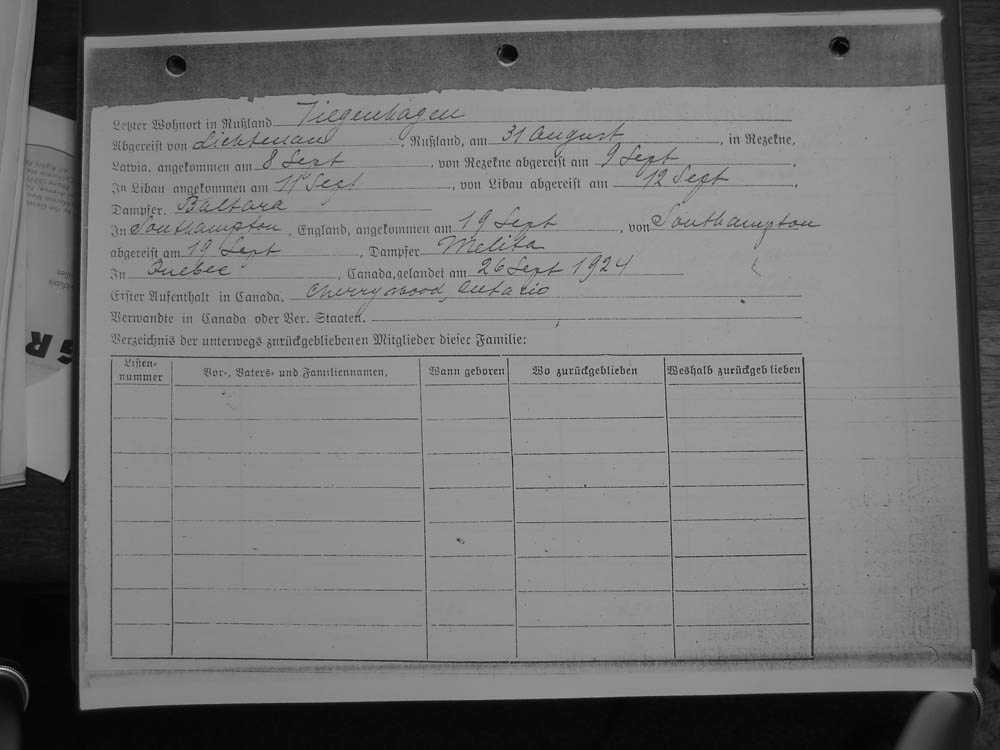 Letzter Wohnort in Rußland Tiegenhagen
Abgereist von Lichtenau, Rußland, am 31 August, in Rezekne,
Latvia, angekommen am 8 Sept, von Rezekne abgereist am 9 Sept,
In Libau angekommen am 11 Sept, von Libau abgereist am 12 Sept,
Dampfer, Baltara
In Southampton, England, angekommen am 19 Sept, von Southampton
abgereist am 19 Sept, Dampfer Melita
In Quebec, Canada, gelandet am 26 Sept 1924
Erster Aufenthalt in Canada, Cherrywood, Ontario
Verwandte in Canada oder Ver. Staaten.
Verzeichnis der unterwegs zurückgebliebenen Mitglieder dieser Familie:
Listen-nummer Vor-, Vaters- und Familiennamen, Wann geboren Wo zurückgeblieben Weshalb zurückgeblieben
GR